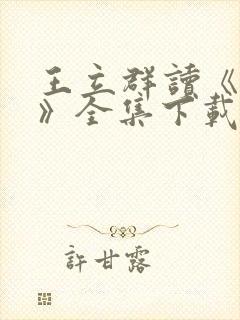 王立群讀《
》全集下載
許甘露